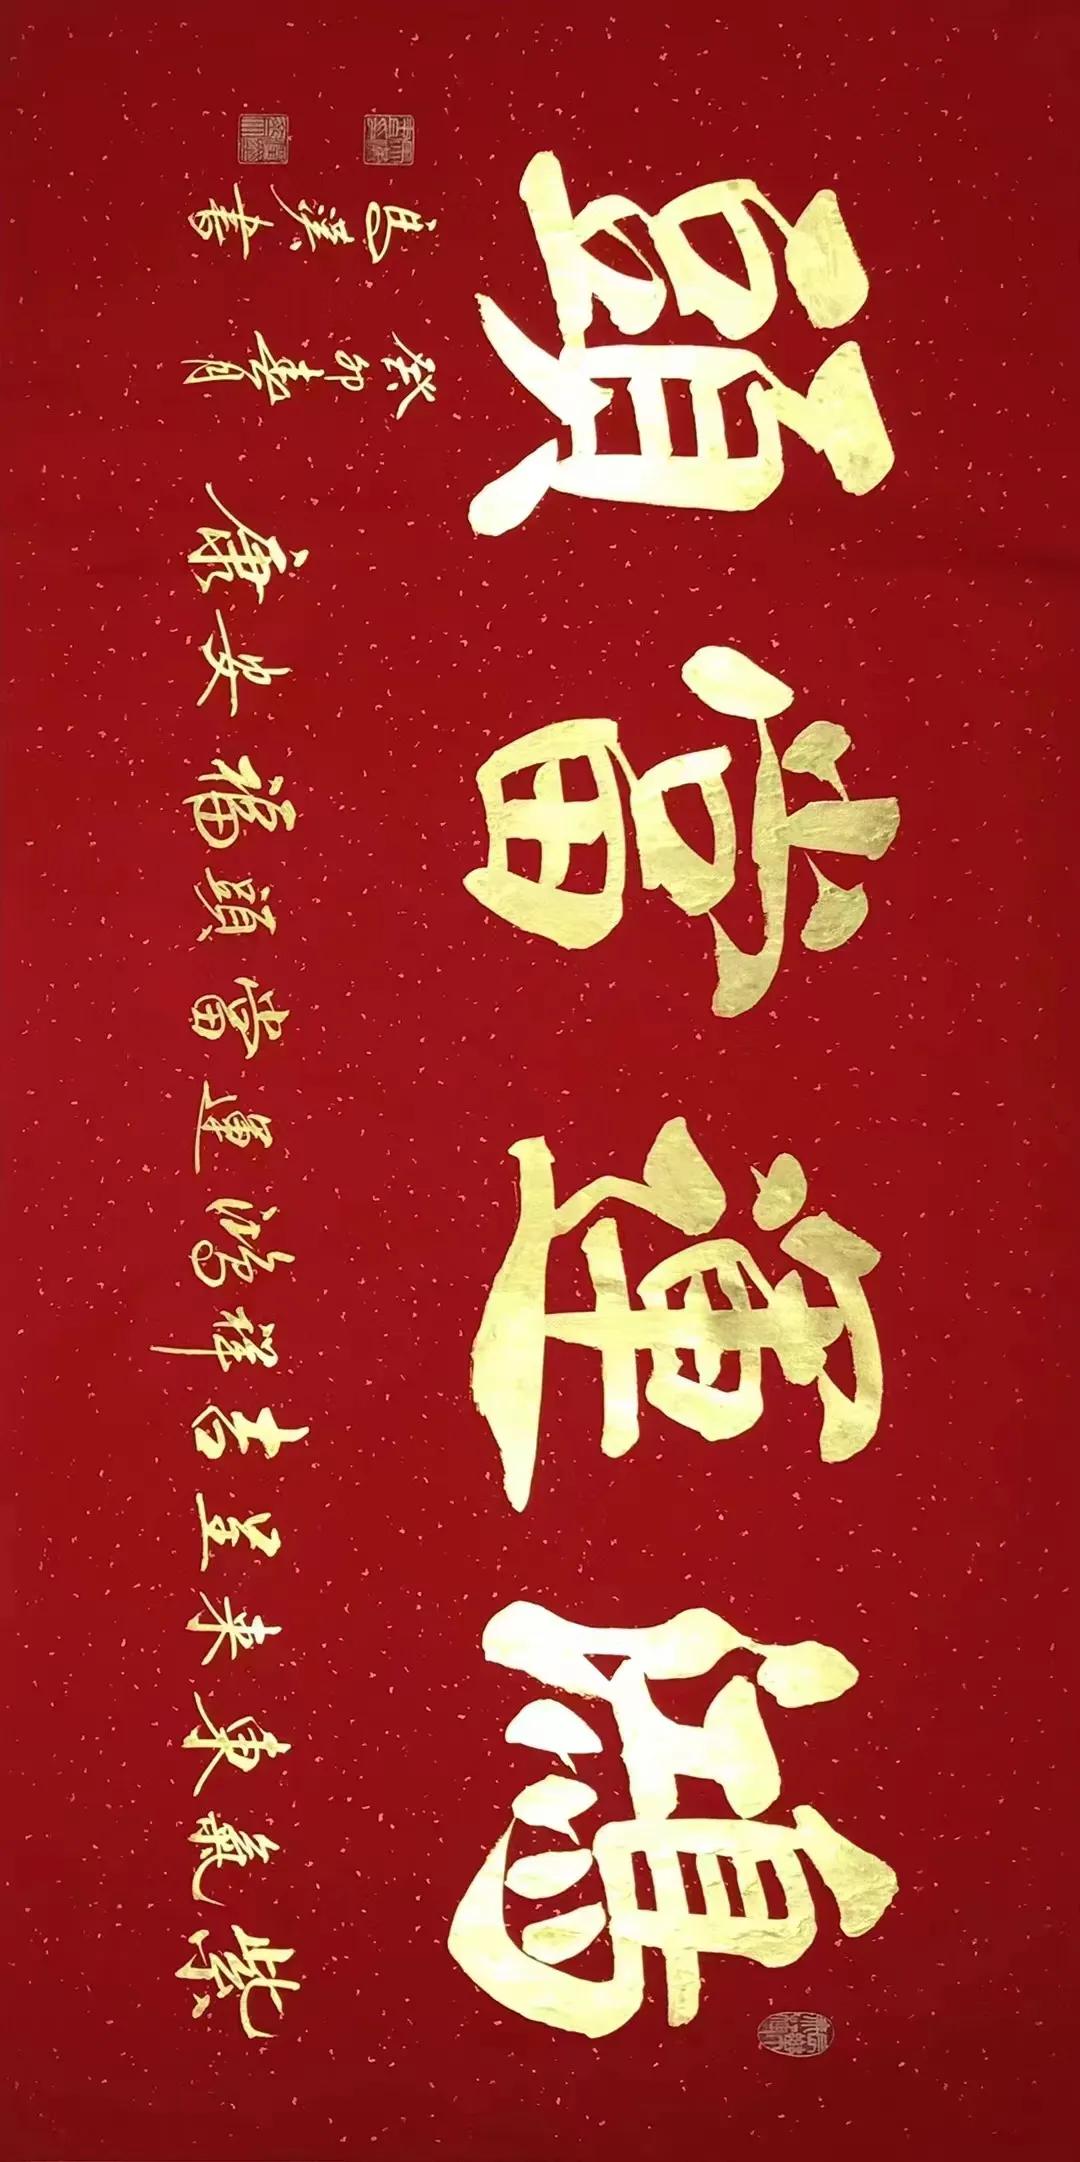 鴻運當頭
紫氣東來呈吉祥鴻運當頭福安康
癸卯
書